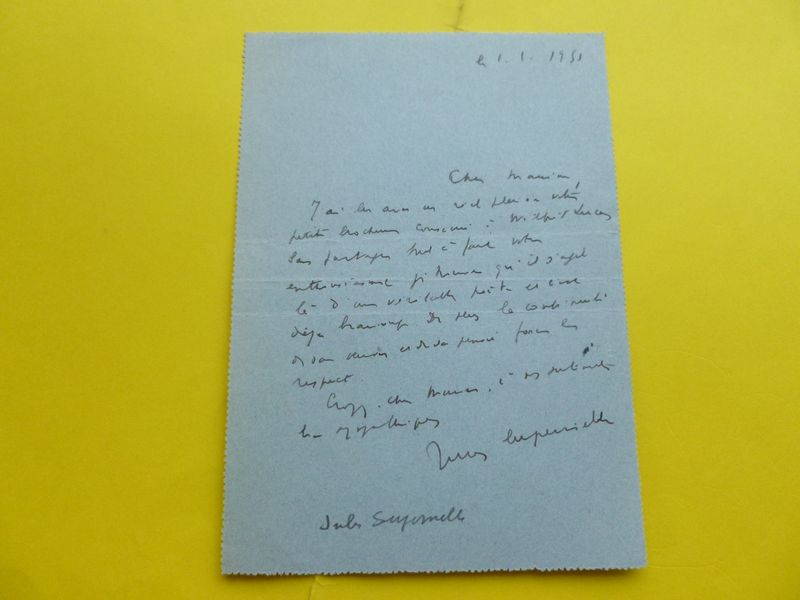 le 1. 1. 1951
Cher Monsieur,
J'ai lu avec un réel plaisir votre
petite brochure consacrée à Wilfrid Lucas
Sans partager tout à fait votre
enthousiasme je trouve qu'il s'agit
là d'un véritable poète et c'est
déjà beaucoup. De plus la continuité
de son œuvre et de sa pensée force le
respect.
Croyez, cher Monsieur, à mes sentiments
les sympathiques
Jules Supervielle
Jules Supervielle